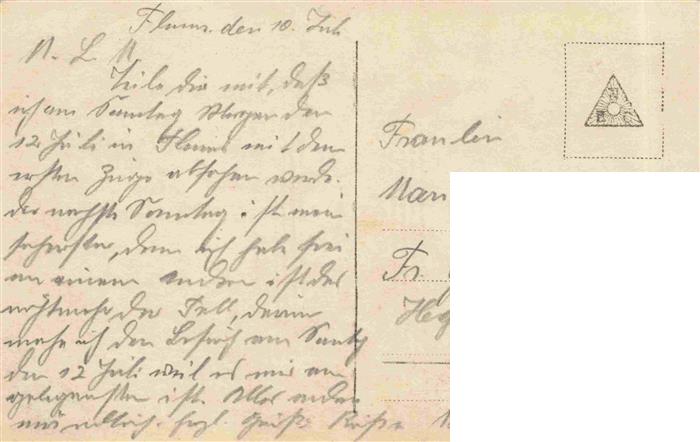 Flums. den 10. Juli
M. L. M.
Teile dir mit, daß
ich am Sonntag Morgen den
12 Juli in Flums mit dem
ersten Zuge abfahren werde.
Der nächste Sonntag ist mein
denn ich habe frei
an einem andern ist das
nicht mehr der Fall, darum
mache ich den Besuch am Sontg
den 12 Juli weil es mir am
gelegensten ist. Alles andere
mündlich. Hrzl. Grüße Küße
Fraulein
Mari
Fr.
Heg